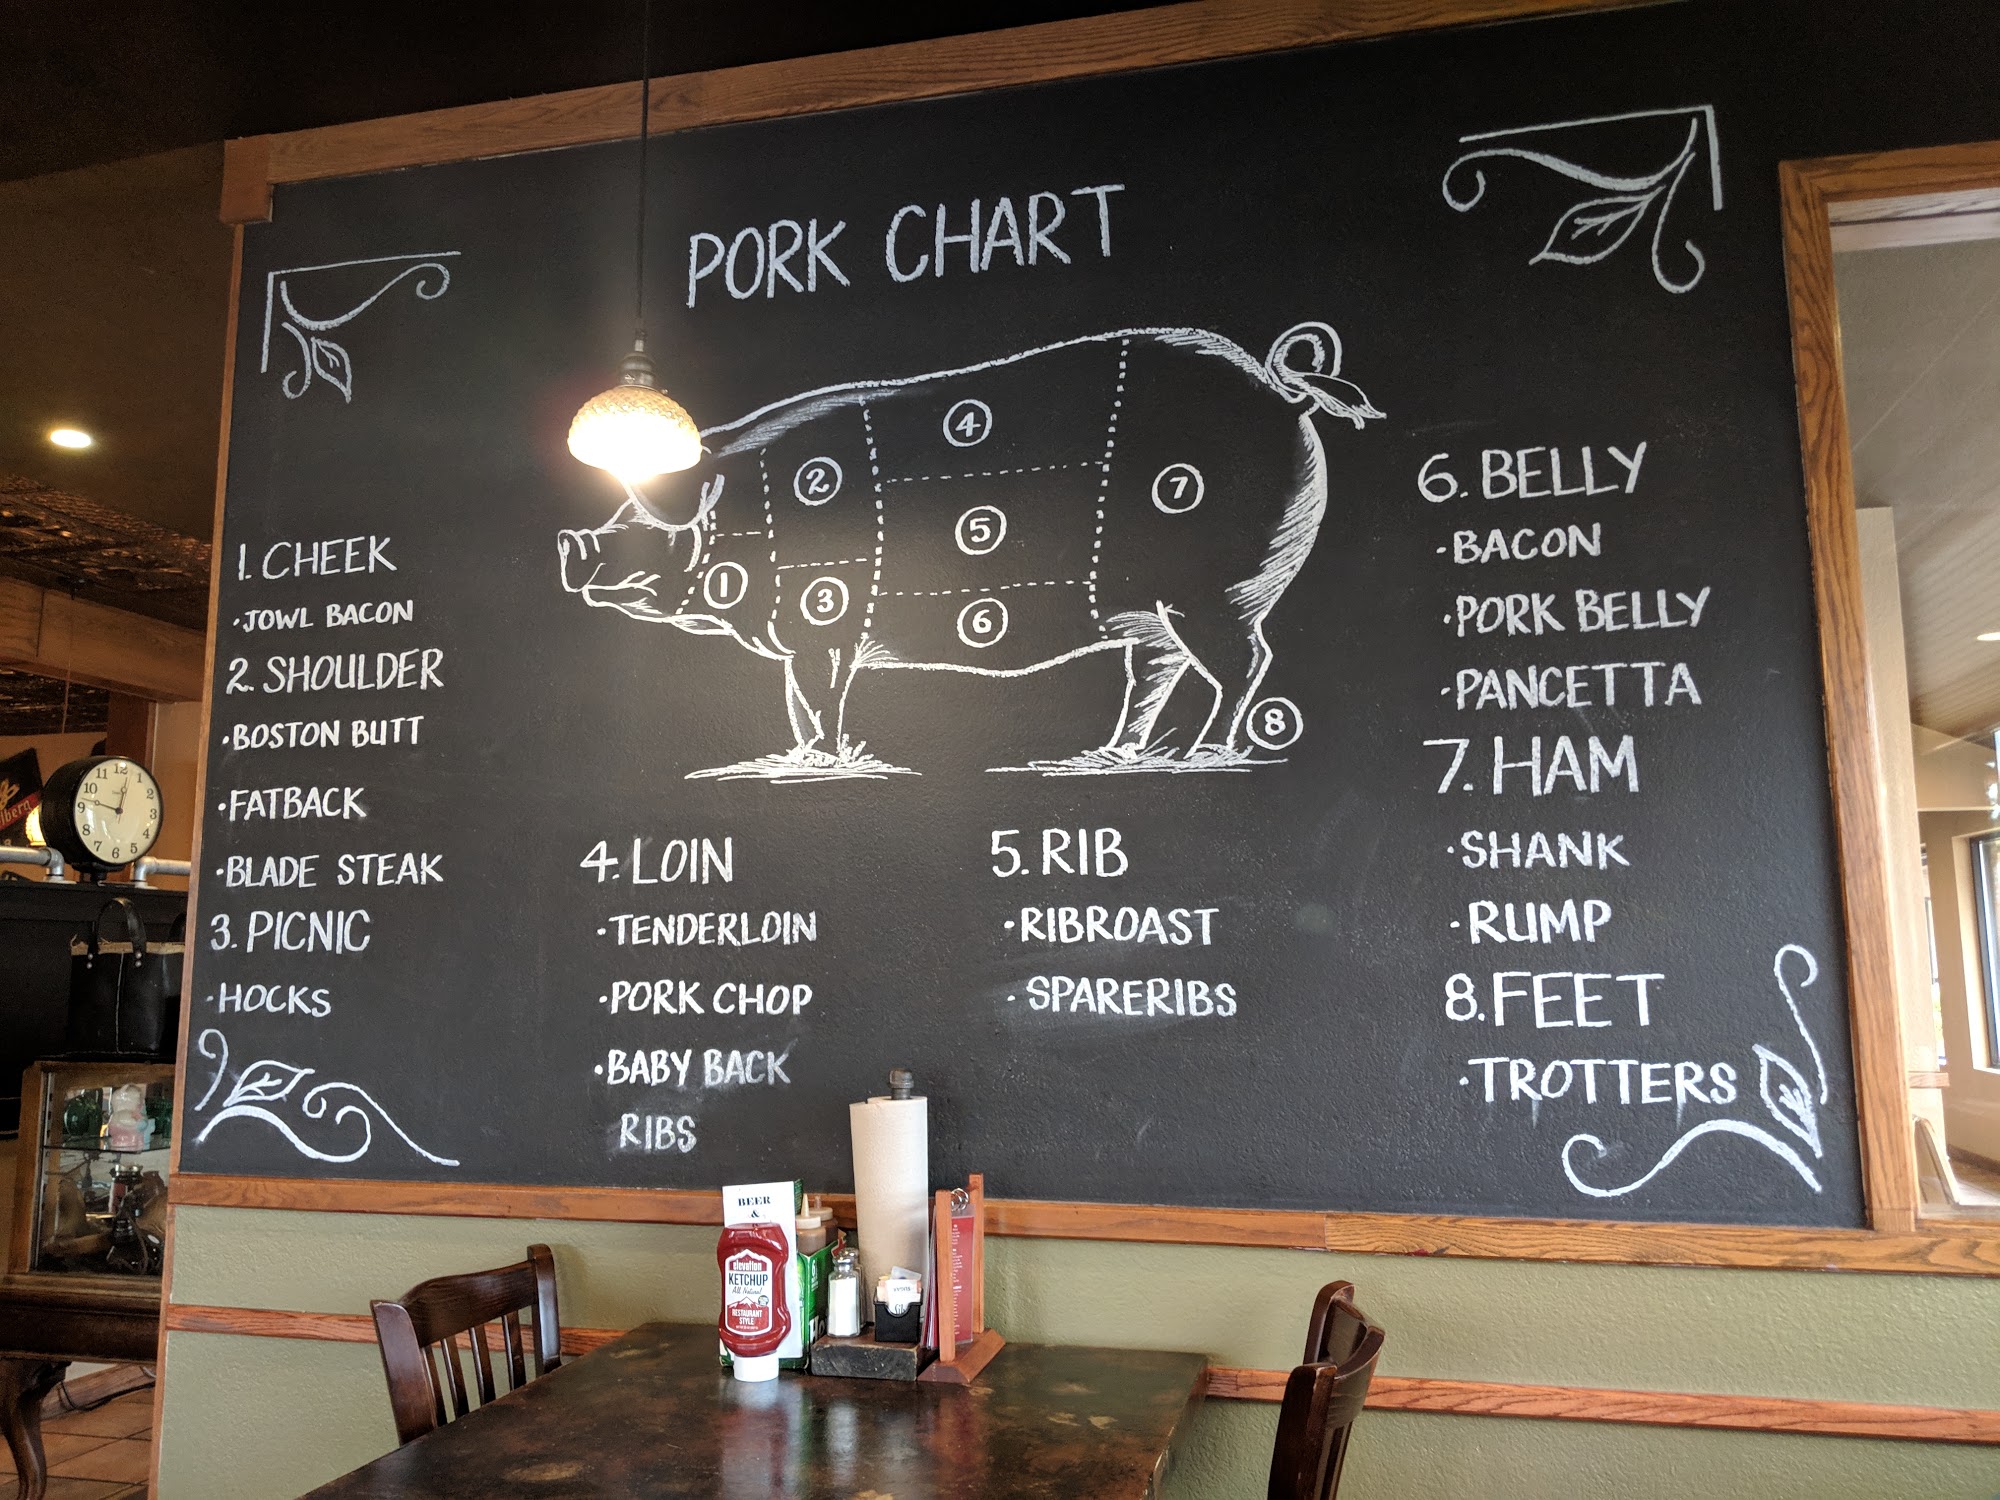 PORK CHART
1
2
3
4
5
6
7
8
1. CHEEK
·JOWL BACON
2. SHOULDER
·BOSTON BUTT
·FATBACK
·BLADE STEAK
3. PICNIC
·HOCKS
4. LOIN
·TENDERLOIN
·PORK CHOP
·BABY BACK
RIBS
5. RIB
·RIBROAST
·SPARERIBS
6. BELLY
·BACON
·PORK BELLY
·PANCETTA
7. HAM
·SHANK
·RUMP
8. FEET
·TROTTERS
12
1
2
3
4
5
6
7
8
9
10
11
BEER
&
elevation
KETCHUP
All Natural
RESTAURANT
STYLE